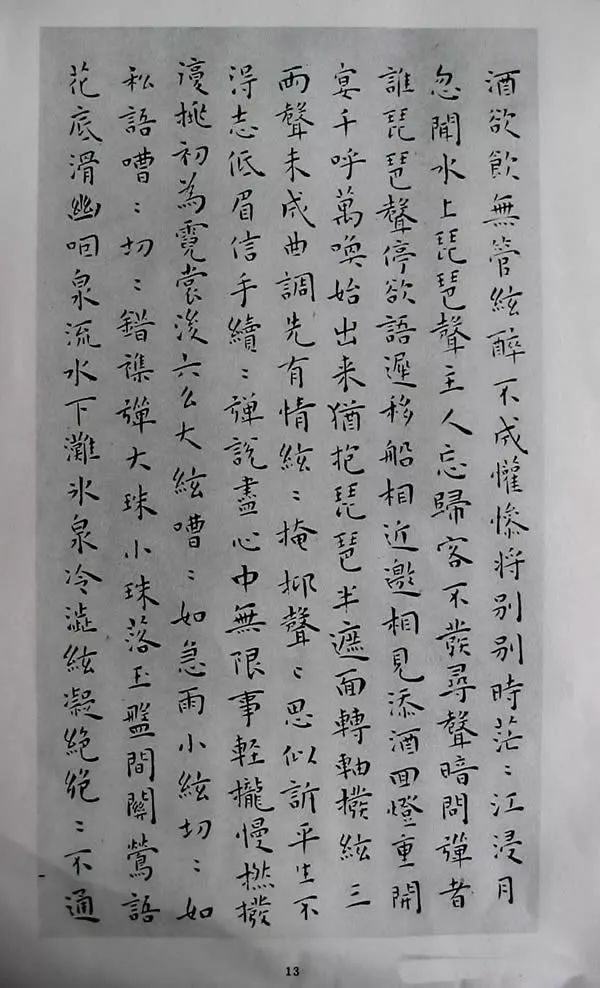 酒欲飲無管絃醉不成懽慘将别别時茫〻江浸月
忽聞水上琵琶聲主人忘歸客不發尋聲暗問彈者
誰琵琶聲停欲語遲移船相近邀相見添酒回燈重開
宴千呼萬喚始出来猶抱琵琶半遮面轉軸撥絃三
兩聲未成曲調先有情絃〻掩抑聲〻思似訴平生不
得志低眉信手續〻彈說盡心中無限事輕攏慢撚撥
復挑初為霓裳後六么大絃嘈〻如急雨小絃切〻如
私語嘈〻切〻錯雜彈大珠小珠落玉盤間關鶯語
花底滑幽咽泉流水下灘氷泉冷澁絃凝絕絕〻不通
13